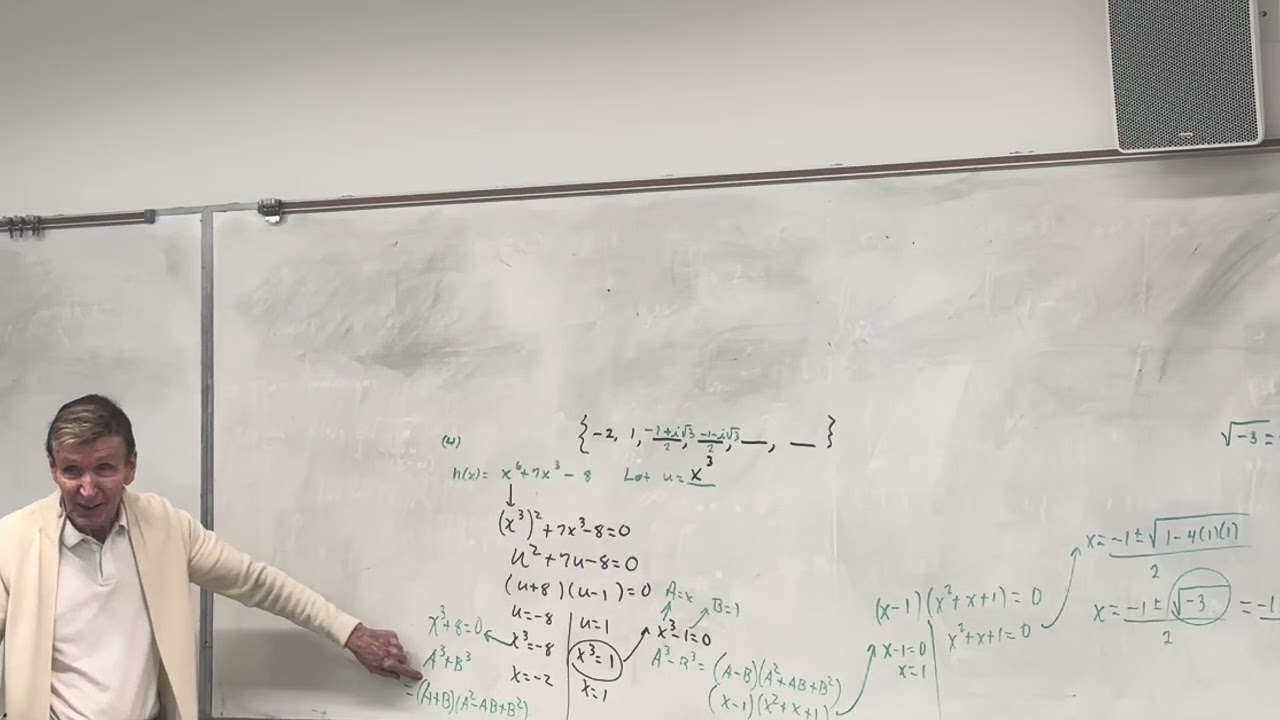 (4)
{-2, 1, \frac{-1+i√3}{2}, \frac{-1-i√3}{2}, __, __}
h(x) = x^6+7x^3-8 Let u = x^3
(x^3)^2+7x^3-8=0
u^2+7u-8=0
(u+8)(u-1)=0
u=-8
x^3=-8
x=-2
x^3+8=0
A^3+B^3
=(A+B)(A^2-AB+B^2)
u=1
x^3=1
x=1
A=x
B=1
x^3-1=0
A^3-B^3=(A-B)(A^2+AB+B^2)
(x-1)(x^2+x+1)
(x-1)(x^2+x+1)=0
x-1=0
x=1
x^2+x+1=0
x=\frac{-1±√(1-4(1)(1))}{2}
x=\frac{-1±√-3}{2} = -1
√-3 =